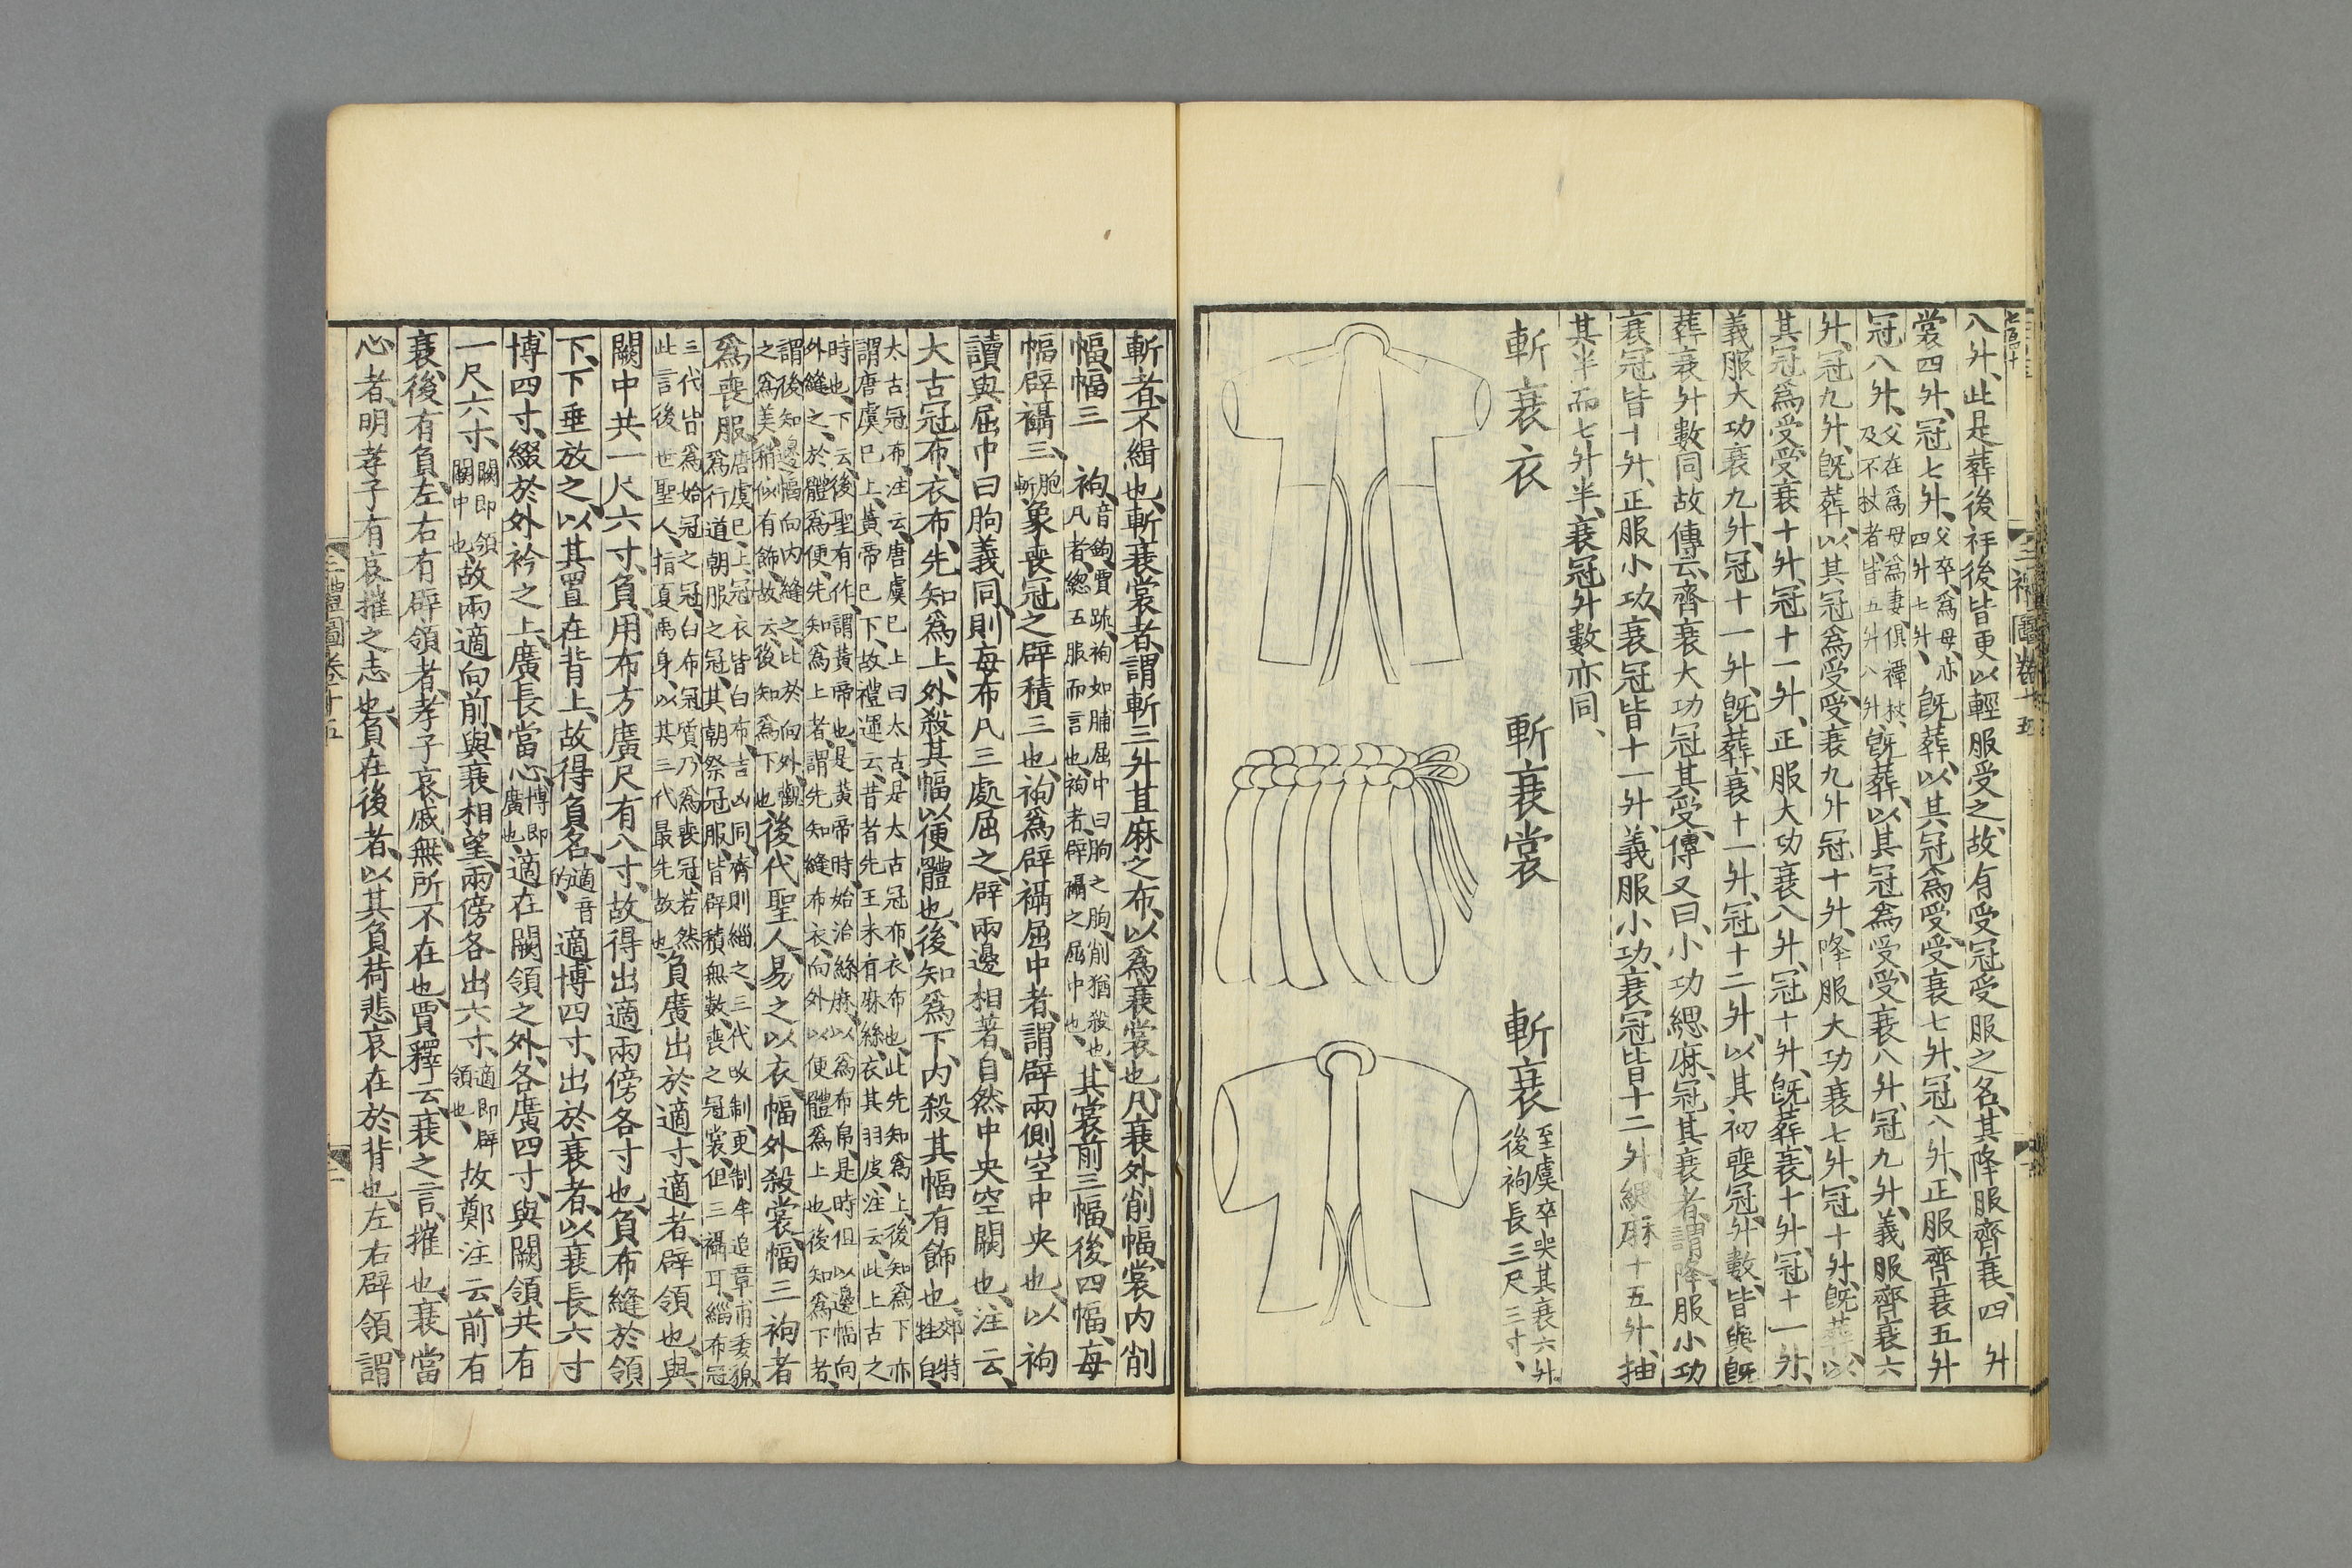 八升、此是葬後祥後皆更以輕服受之、故有受冠受服之名、其降服齊衰、四升
裳四升、冠七升、父卒、爲母、亦四升七升、旣葬、以其冠爲受、受衰七升、冠八升、正服齊衰五升
冠八升、父在爲母爲妻、俱禫杖、及不杖者、皆五升八升、旣葬、以其冠爲受、受衰八升、冠九升、義服齊衰六
升、冠九升、旣葬、以其冠爲受、受衰九升冠十升、降服大功衰七升、冠十升、旣葬、以
其冠爲受、受衰十升、冠十一升、正服大功衰八升、冠十升、旣葬、衰十升、冠十一升、
義服大功衰九升、冠十一升、旣葬、衰十一升、冠十二升、以其初喪冠升數、皆與旣
葬衰升數同、故傳云、齊衰大功冠其受、傳又曰、小功緦麻、冠其衰者、謂降服小功
衰冠皆十升、正服小功、衰冠皆十一升、義服小功、衰冠皆十二升、緦麻十五升、抽
其半而七升半、衰冠升數亦同、
斬衰衣
斬衰裳
斬衰 至虞卒哭其衰六升後袧長三尺三寸、
斬者、不緝也、斬衰裳者、謂斬三升苴麻之布、以爲衰裳也、凡衰外削幅、裳内削
幅、幅三袧、音鉤、賈疏、袧如脯屈中曰朐之朐、削猶殺也、凡者、緫五服而言也、袧者、辟襵之屈中也、其裳前三幅、後四幅、每
幅辟襵三、象喪冠之辟積三也、袧爲辟襵屈中者、謂辟兩側、空中央也、以袧
讀與屈巾曰朐義同、則每布凡三處屈之、辟兩邊相著、自然中央空闕也、注云、
大古冠布、衣布、先知爲上、外殺其幅以便體也、後知爲下、内殺其幅有飾也、郊特牲自、
太古冠布、注云、唐虞巳上曰太古、是大古冠布、衣布也、此先知爲上、後知爲下、亦謂唐虞巳上、黃帝巳下、故禮運云、昔者先王未有麻絲、衣其羽皮、注云、此上古之
時也、下云、後聖有作、謂黃帝也、是黃帝時、始治絲麻、以爲布帛、是時但以邊幅向外縫之、於體爲便、先知爲上者、謂先知縫布衣、向外以便體爲上也、後知爲下者、
謂後知邊幅向内縫之、比於向外、觀之爲美、稍似有飾、故云、後知爲下也、後代聖人、易之以衣、幅外殺裳、幅三袧者
爲喪服、唐虞巳上、冠衣皆白布、吉凶同、齊則緇之、三代改制、更制牟追章甫委貌、爲行道朝服之冠、其朝祭冠服、皆辟積無數、喪之冠裳、但三襵耳、緇布冠
三代皆爲始冠之冠、白布冠質、乃爲喪冠、若然此言後世聖人、指夏禹身、以其三代最先故也、負廣出於適寸、適者、辟領也、與
闕中共一尺六寸、負、用布方廣尺有八寸、故得出適兩傍各寸也、負布縫於領
下、下垂放之、以其置在背上、故得負名、適音的、適博四寸、出於衰者、以衰長六寸
博四寸、綴於外衿之上、廣長當心、博即廣也、適在闕領之外、各廣四寸、與闕領共有
一尺六寸、闕即領闕中也、故兩適向前、與衰相望、兩傍各出六寸、適即辟領也、故鄭注云、前有
衰、後有負、左右有辟領者、孝子哀戚、無所不在也、賈釋云、衰之言、摧也、衰當
心者、明孝子有哀摧之志也、負在後者、以其負荷悲哀在於背也、左右辟領、謂
三禮圖卷十五